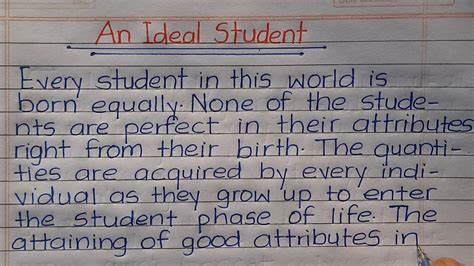 An Ideal Student
Every student in this world is
born equally. None of the stude-
nts are perfect in their attributes
right from their birth. The quanti-
ties are acquired by every indi-
vidual as they grow up to enter
the student phase of life. The
attaining of good attributes in